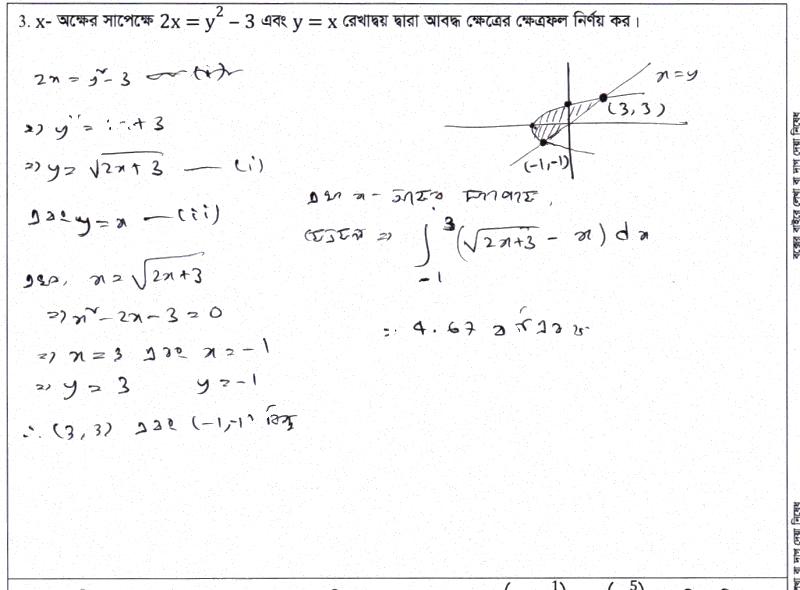 3. x- অক্ষের সাপেক্ষে 2x = y² – 3 এবং y = x রেখাদ্বয় দ্বারা আবদ্ধ ক্ষেত্রের ক্ষেত্রফল নির্ণয় কর।
2x = y² - 3
=> y² = 2x + 3
=> y = √(2x + 3) — (i)
এবং y = x — (ii)
এখন, x = √(2x+3)
=> x² - 2x - 3 = 0
=> x = 3 এবং x = -1
=> y = 3 y = -1
∴ (3, 3) এবং (-1, -1) বিন্দু
x = y
(3, 3)
(-1, -1)
এখন x - অক্ষের সাপেক্ষে,
ক্ষেত্রফল => ∫₋₁³ (√(2x+3) - x) dx
= 4.67 বর্গ একক
বক্সের বাইরে লেখা বা দাগ দেয়া নিষেধ
লেখা বা দাগ দেয়া নিষেধ